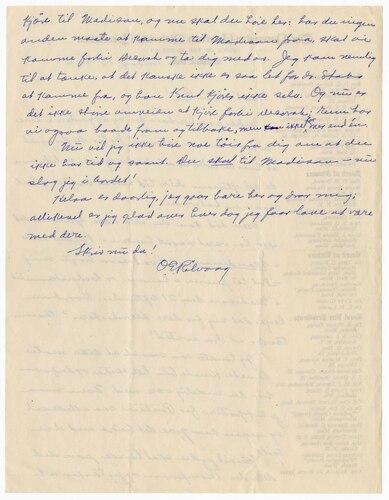 kjöre til Madison, og nu skal du höre her: har du ingen
anden maate at komme til Madison paa, skal vi
komme forbi Decorah og ta dig med os. Jeg kom nemlig
til at tænke, at det kanske ikke er saa let for dr. Stabo
at komme fra, og han Knut kjörer ikke selv. Og nu er
det ikke store omveien at kjöre forbi Decorah; rum har
vi ogsaa baade frem og tilbake, men ikke mer end én.
Nu vil jeg ikke höre noe töis fra dig om at du
ikke har tid og saant. Du skal til Madison — nu
slog jeg i bordet!
Helsa er daarlig; jeg gaar bare her og drar mig;
allikevel er jeg glad over hver dag jeg faar love at være
med dere.
Skriv nu da!
O E Rölvaag